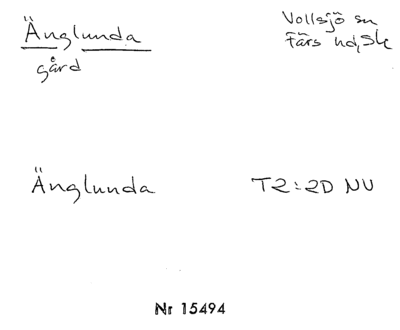 Änglunda
gård
Vollsjö sn
Färs hd, Sk
Änglunda
T2:2D NV
Nr 15494